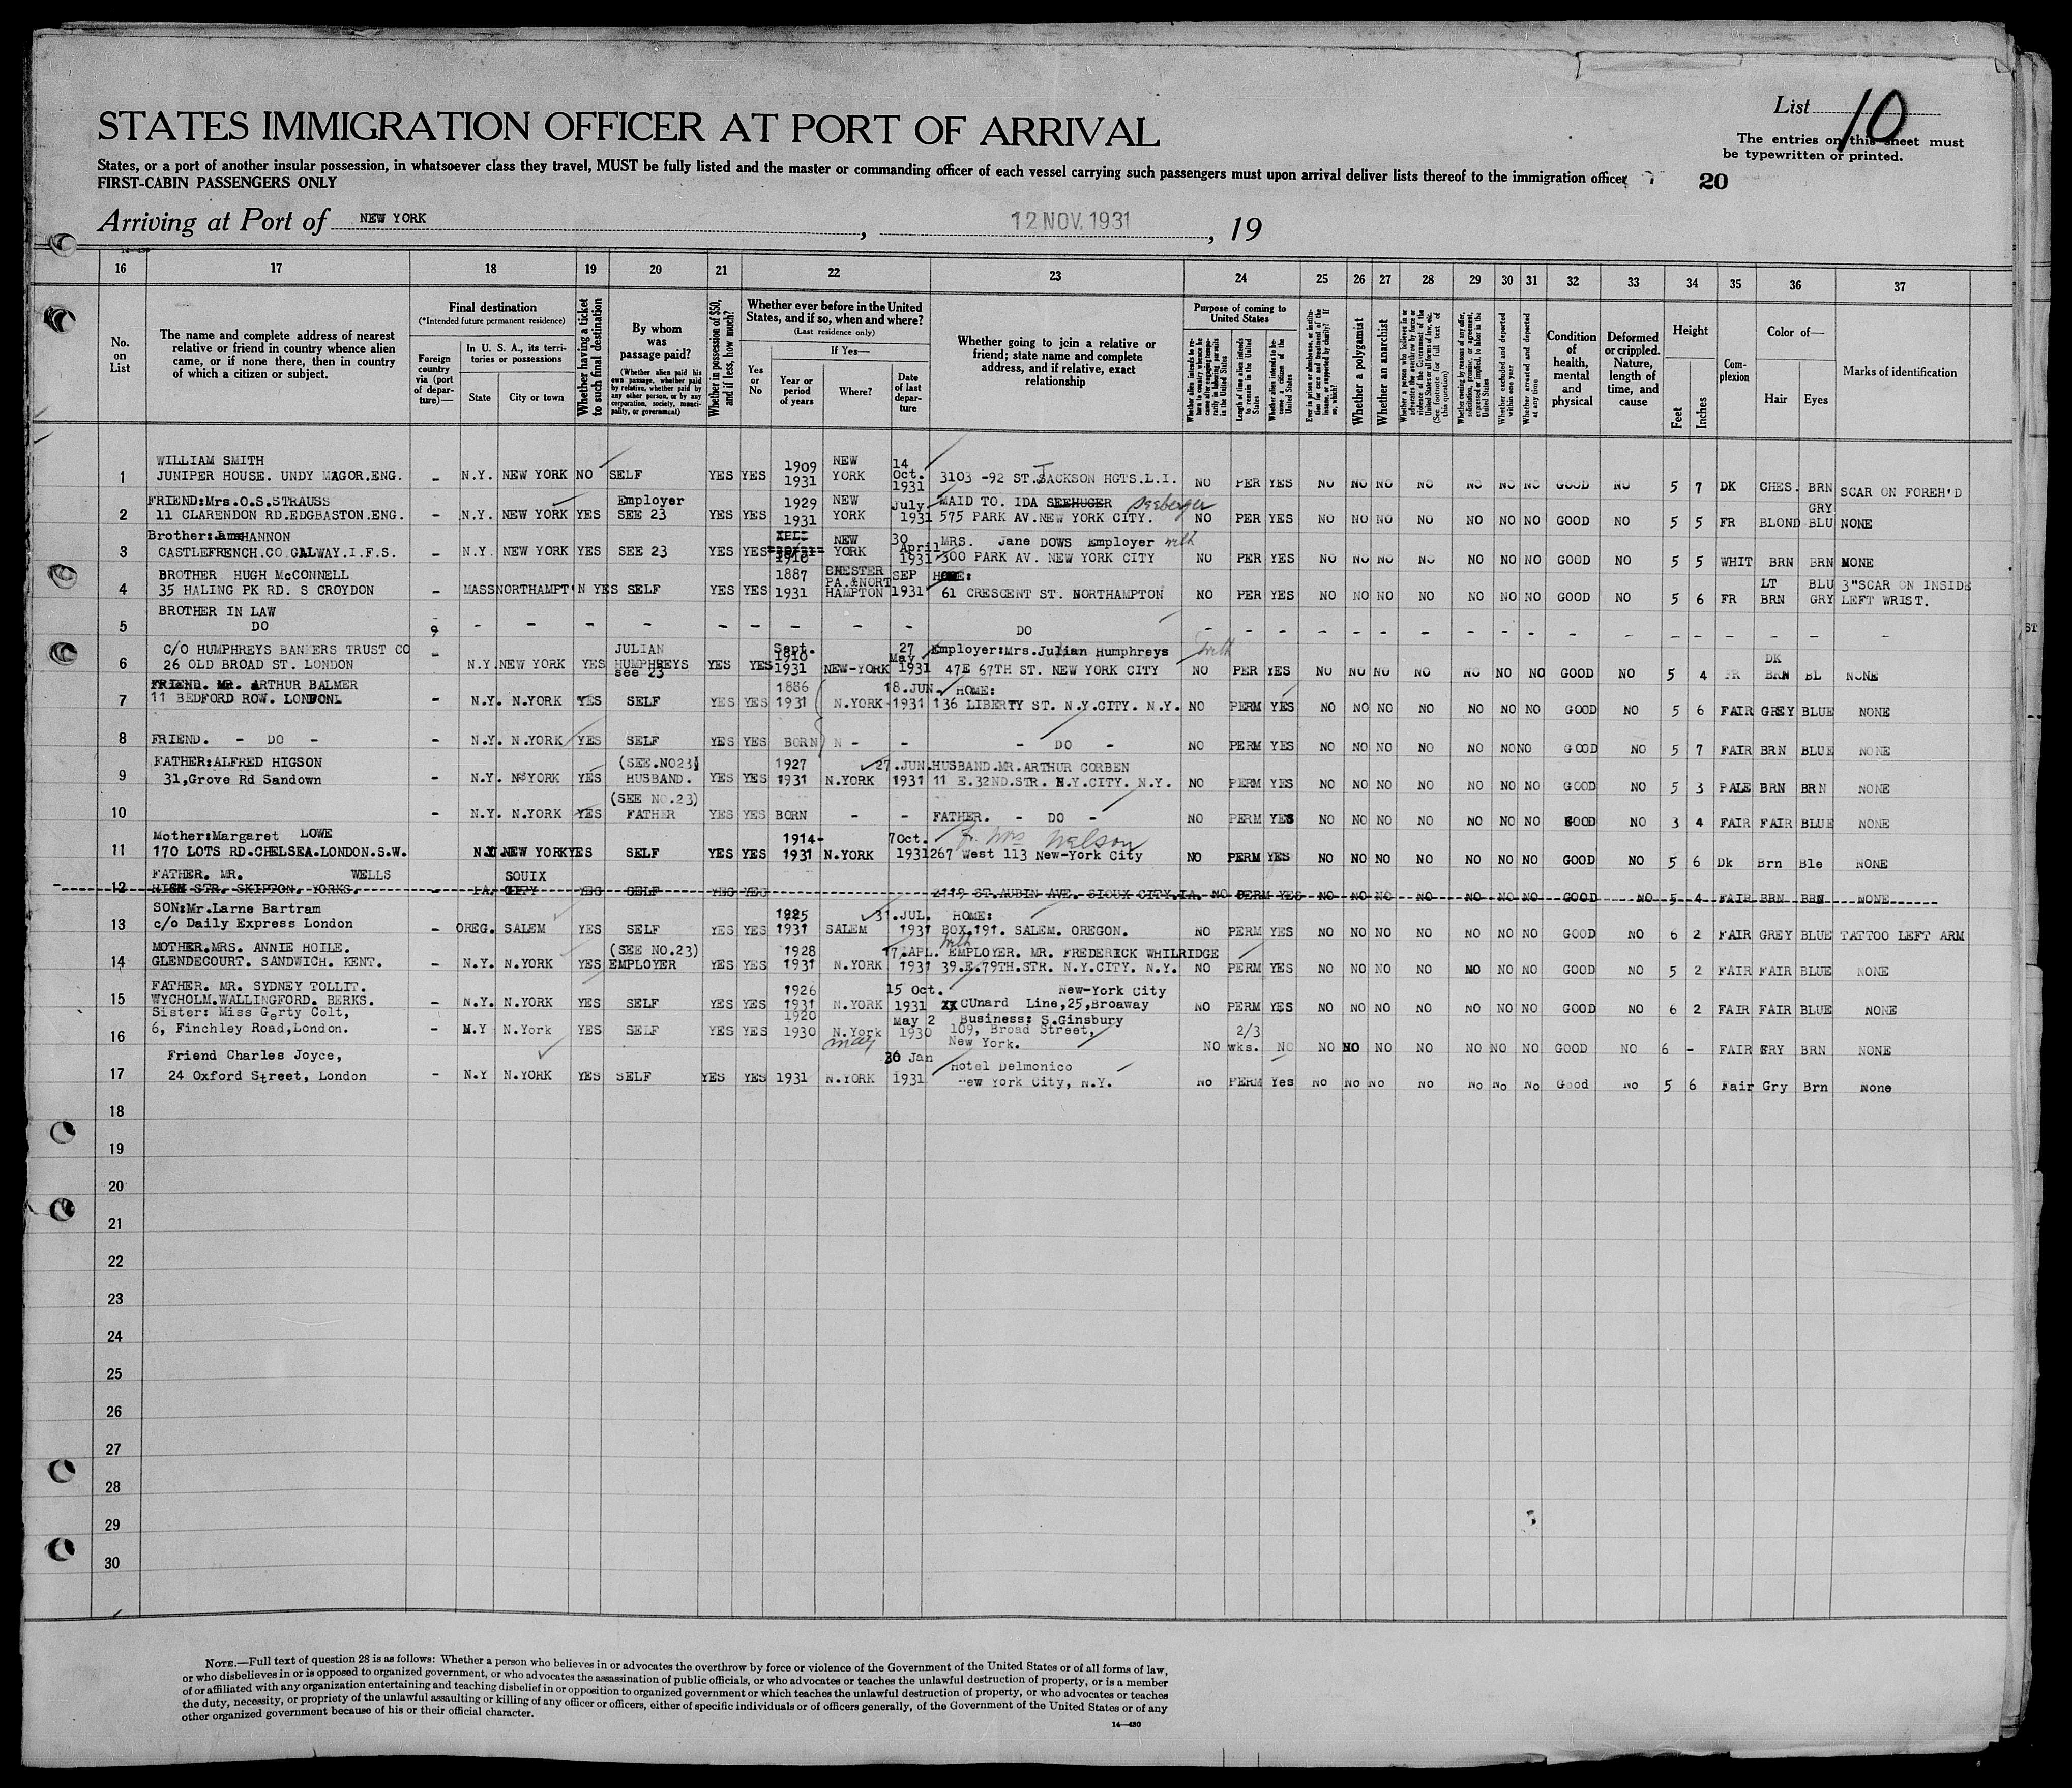 List 10
STATES IMMIGRATION OFFICER AT PORT OF ARRIVAL
The entries on this sheet must
be typewritten or printed.
States, or a port of another insular possession, in whatsoever class they travel, MUST be fully listed and the master or commanding officer of each vessel carrying such passengers must upon arrival deliver lists thereof to the immigration officer
FIRST-CABIN PASSENGERS ONLY
20
Arriving at Port of NEW YORK, 12 NOV. 1931, 19
16 17 18 19 20 21 22 23 24 25 26 27 28 29 30 31 32 33 34 35 36 37
No. on List
The name and complete address of nearest relative or friend in country whence alien came, or if none there, then in country of which a citizen or subject.
Final destination
(*Intended future permanent residence)
Foreign country via (port of departure)—
In U. S. A., its territories or possessions
State
City or town
Whether having a ticket to such final destination
By whom was passage paid?
(Whether alien paid his own passage, whether paid by relative, whether paid by any other person, or by any corporation, society, municipality, or government)
Whether in possession of $50, and if less, how much?
Whether ever before in the United States, and if so, when and where?
(Last residence only)
Yes or No
If Yes—
Year or period of years
Where?
Date of last departure
Whether going to join a relative or friend; state name and complete address, and if relative, exact relationship
Purpose of coming to United States
Length of time alien intends to remain in the United States
Whether alien intends to become a citizen of the United States
Whether a polygamist
Whether an anarchist
(See footnote for full text of this question)
Whether excluded and deported within one year
Whether arrested and deported at any time
Condition of health, mental and physical
Deformed or crippled. Nature, length of time, and cause
Height
Feet
Inches
Complexion
Color of—
Hair
Eyes
Marks of identification
WILLIAM SMITH 1909 NEW 14
1 JUNIPER HOUSE. UNDY MAGOR.ENG. - N.Y. NEW YORK NO SELF YES YES 1931 YORK Oct. 1931 3103 -92 ST.JACKSON HGTS.L.I. NO PER YES NO NO NO NO NO NO NO GOOD NO 5 7 DK CHES. BRN SCAR ON FOREH'D
FRIEND:Mrs.O.S.STRAUSS Employer 1929 NEW July MAID TO. IDA SEEHUGER Seeberger GRY
2 11 CLARENDON RD.EDGBASTON.ENG. - N.Y. NEW YORK YES SEE 23 YES YES 1931 YORK 1931 575 PARK AV.NEW YORK CITY. NO PER YES NO NO NO NO NO NO NO GOOD NO 5 5 FR BLOND BLU NONE
Brother:JamSHANNON NEW 30 MRS. Jane DOWS Employer with
3 CASTLEFRENCH.CO GALWAY.I.F.S. - N.Y. NEW YORK YES SEE 23 YES YES 1910 YORK April 1931 300 PARK AV. NEW YORK CITY NO PER YES NO NO NO NO NO NO NO GOOD NO 5 5 WHIT BRN BRN NONE
BROTHER HUGH McCONNELL 1887 CHESTER PA.&NORT SEP HOME: LT BLU 3"SCAR ON INSIDE
4 35 HALING PK RD. S CROYDON - MASS NORTHAMPT'N YES SELF YES YES 1931 HAMPTON 1931 61 CRESCENT ST. NORTHAMPTON NO PER YES NO NO NO NO NO NO NO GOOD NO 5 6 FR BRN GRY LEFT WRIST.
BROTHER IN LAW
5 DO - - - - - - - - - DO - - - - - - - - - - - - - - - - - -
C/O HUMPHREYS BANKERS TRUST CO - JULIAN Sept. 1910 27 May Employer:Mrs.Julian Humphreys with DK
6 26 OLD BROAD ST. LONDON N.Y. NEW YORK YES HUMPHREYS see 23 YES YES 1931 NEW-YORK 1931 47E 67TH ST. NEW YORK CITY NO PER YES NO NO NO NO NO NO NO GOOD NO 5 4 FR BRN BL NONE
FRIEND. MR. ARTHUR BALMER 1886 18.JUN. HOME:
7 11 BEDFORD ROW. LONDON. - N.Y. N.YORK YES SELF YES YES 1931 N.YORK 1931 136 LIBERTY ST. N.Y.CITY. N.Y. NO PERM YES NO NO NO NO NO NO NO GOOD NO 5 6 FAIR GREY BLUE NONE
8 FRIEND. - DO - - N.Y. N.YORK YES SELF YES YES BORN N - - - DO - NO PERM YES NO NO NO NO NO NO NO GOOD NO 5 7 FAIR BRN BLUE NONE
FATHER:ALFRED HIGSON (SEE.NO23) 1927 27.JUN. HUSBAND.MR.ARTHUR CORBEN
9 31,Grove Rd Sandown - N.Y. N.YORK YES HUSBAND. YES YES 1931 N.YORK 1931 11 E.32ND.STR. N.Y.CITY. N.Y. NO PERM YES NO NO NO NO NO NO NO GOOD NO 5 3 PALE BRN BRN NONE
(SEE NO.23)
10 - N.Y. N.YORK YES FATHER YES YES BORN - - FATHER. - DO - NO PERM YES NO NO NO NO NO NO NO GOOD NO 3 4 FAIR FAIR BLUE NONE
Mother:Margaret LOWE 1914- 7Oct. Fr. Mrs Nelson
11 170 LOTS RD.CHELSEA.LONDON.S.W. N.Y. NEW YORK YES SELF YES YES 1931 N.YORK 1931 267 West 113 New-York City NO PERM YES NO NO NO NO NO NO NO GOOD NO 5 6 Dk Brn Ble NONE
FATHER. MR. WELLS SOUIX
12 HIGH STR. SKIPTON. YORKS. - IA. CITY YES SELF YES YES 2119 ST.AUBIN AVE. SIOUX CITY.IA. NO PERM YES NO NO NO NO NO NO NO GOOD NO 5 4 FAIR BRN BRN NONE
SON:Mr.Larne Bartram 31.JUL. HOME:
13 c/o Daily Express London - OREG. SALEM YES SELF YES YES 1931 SALEM 1931 BOX.191. SALEM. OREGON. NO PERM YES NO NO NO NO NO NO NO GOOD NO 6 2 FAIR GREY BLUE TATTOO LEFT ARM
MOTHER.MRS. ANNIE HOILE. (SEE NO.23) 1928 17.APL. with EMPLOYER. MR. FREDERICK WHILRIDGE
14 GLENDECOURT. SANDWICH. KENT. - N.Y. N.YORK YES EMPLOYER YES YES 1931 N.YORK 1931 39.E.79TH.STR. N.Y.CITY. N.Y. NO PERM YES NO NO NO NO NO NO NO GOOD NO 5 2 FAIR FAIR BLUE NONE
FATHER. MR. SYDNEY TOLLIT. 1926 15 Oct. New-York City
15 WYCHOLM.WALLINGFORD. BERKS. - N.Y. N.YORK YES SELF YES YES 1931 N.YORK 1931 CUnard Line,25,Broaway NO PERM YES NO NO NO NO NO NO NO GOOD NO 6 2 FAIR FAIR BLUE NONE
Sister: Miss Gerty Colt, 1920 May 2 Business: S.Ginsbury
16 6, Finchley Road,London. - N.Y N.York YES SELF YES YES 1930 N.York may 1930 109, Broad Street, New York. NO 2/3 wks. NO NO NO NO NO NO NO NO GOOD NO 6 - FAIR GRY BRN NONE
Friend Charles Joyce, 30 Jan Hotel Delmonico
17 24 Oxford Street, London - N.Y N.YORK YES SELF YES YES 1931 N.YORK 1931 New York City, N.Y. No PERM Yes NO NO NO NO No No No Good No 5 6 Fair Gry Brn None
18
19
20
21
22
23
24
25
26
27
28
29
30
NOTE.—Full text of question 28 is as follows: Whether a person who believes in or advocates the overthrow by force or violence of the Government of the United States or of all forms of law,
or who disbelieves in or is opposed to organized government, or who advocates the assassination of public officials, or who advocates or teaches the unlawful destruction of property, or is a member
of or affiliated with any organization entertaining and teaching disbelief in or opposition to organized government or which teaches the unlawful destruction of property, or who advocates or teaches
the duty, necessity, or propriety of the unlawful assaulting or killing of any officer or officers, either of specific individuals or of officers generally, of the Government of the United States or of any
other organized government because of his or their official character.
14—430